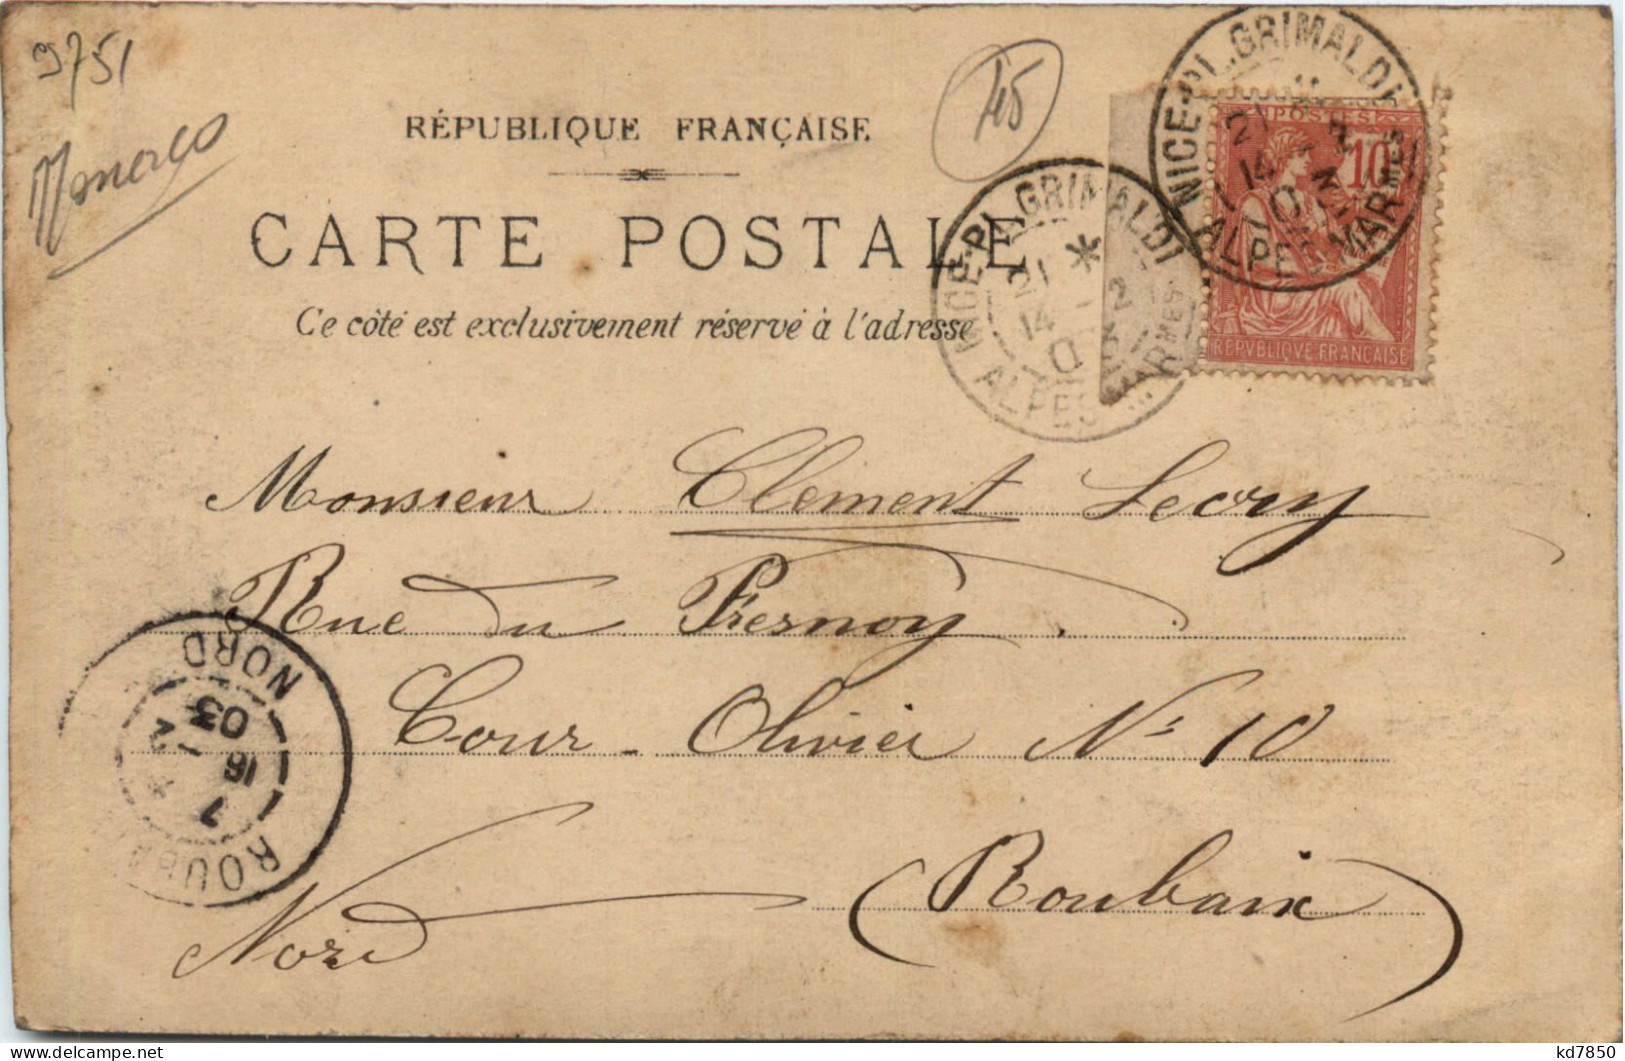 9751
Monaco
45
RÉPUBLIQUE FRANÇAISE
CARTE POSTALE
Ce côté est exclusivement réservé à l'adresse
NICE-PL. GRIMALDI
21 * 14 - 2 03
ALPES MARMES
NICE-PL. GRIMALDI
21 14 - 2 03
ALPES MARMES
POSTES
10
REPVBLIQVE FRANÇAISE
Monsieur Clement Lecry
Rue du Fresnoy.
Cour-Olivier No 10
Nord (Roubaix)
ROUBAIX
7 * 16 - 2 03
NORD
kd7850